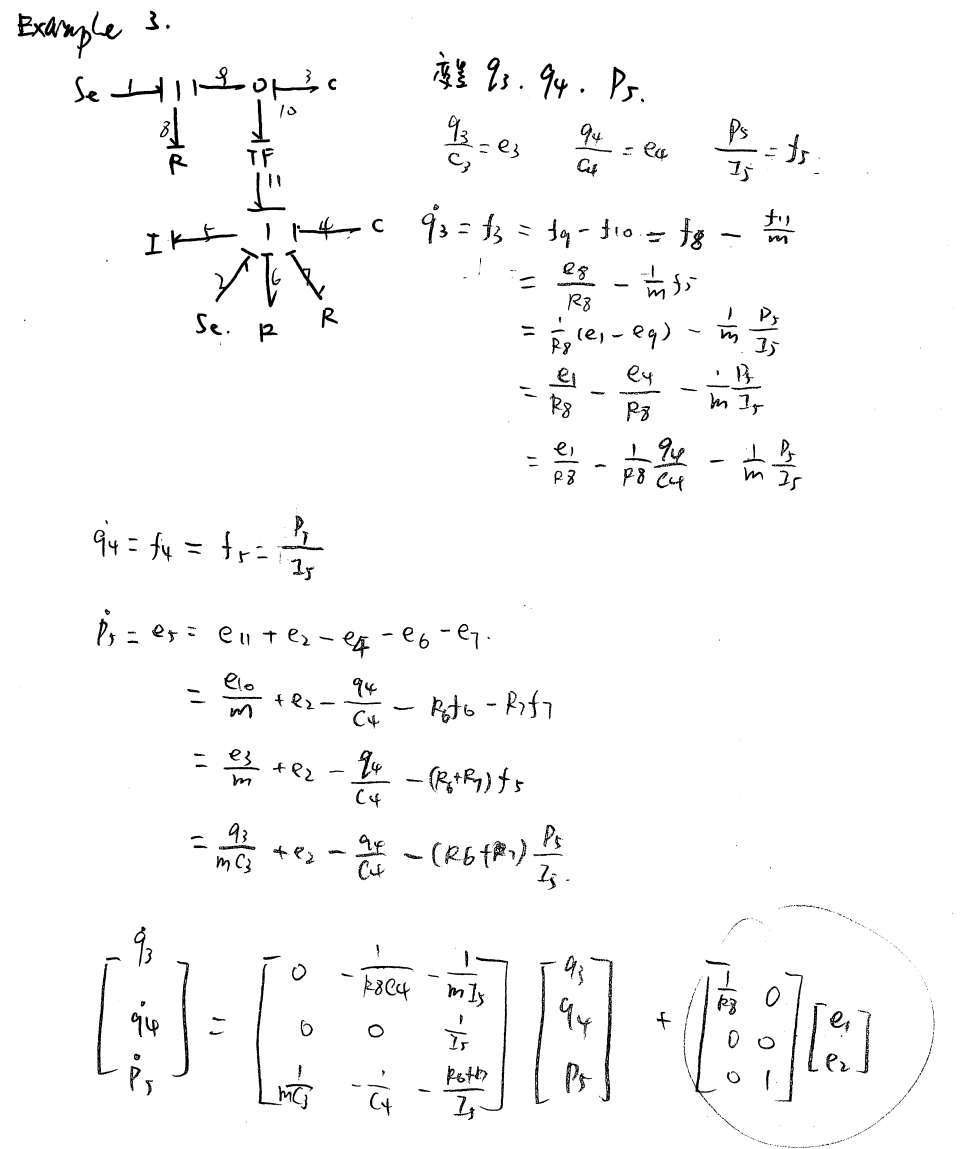 Example 3.
Se 1 1 9 0 3 C
8 10
R TF
11
I 5 1 4 C
2 6 7
Se. R R
变量 q3. q4. P5.
q3/C3 = e3 q4/C4 = e4 P5/I5 = f5
q̇3 = f3 = f9 - f10 = f8 - f11/m
= e8/R8 - 1/m f5
= 1/R8 (e1 - e9) - 1/m P5/I5
= e1/R8 - e4/R8 - 1/m P5/I5
= e1/R8 - 1/R8 q4/C4 - 1/m P5/I5
q̇4 = f4 = f5 = P5/I5
Ṗ5 = e5 = e11 + e2 - e4 - e6 - e7.
= e10/m + e2 - q4/C4 - R6f6 - R7f7
= e3/m + e2 - q4/C4 - (R6+R7) f5
= q3/mC3 + e2 - q4/C4 - (R6+R7) P5/I5.
[q̇3 q̇4 Ṗ5] = [0 -1/R8C4 -1/mI5; 0 0 1/I5; 1/mC3 -1/C4 -R6+R7/I5] [q3 q4 P5] + [1/R8 0; 0 0; 0 1] [e1 e2]